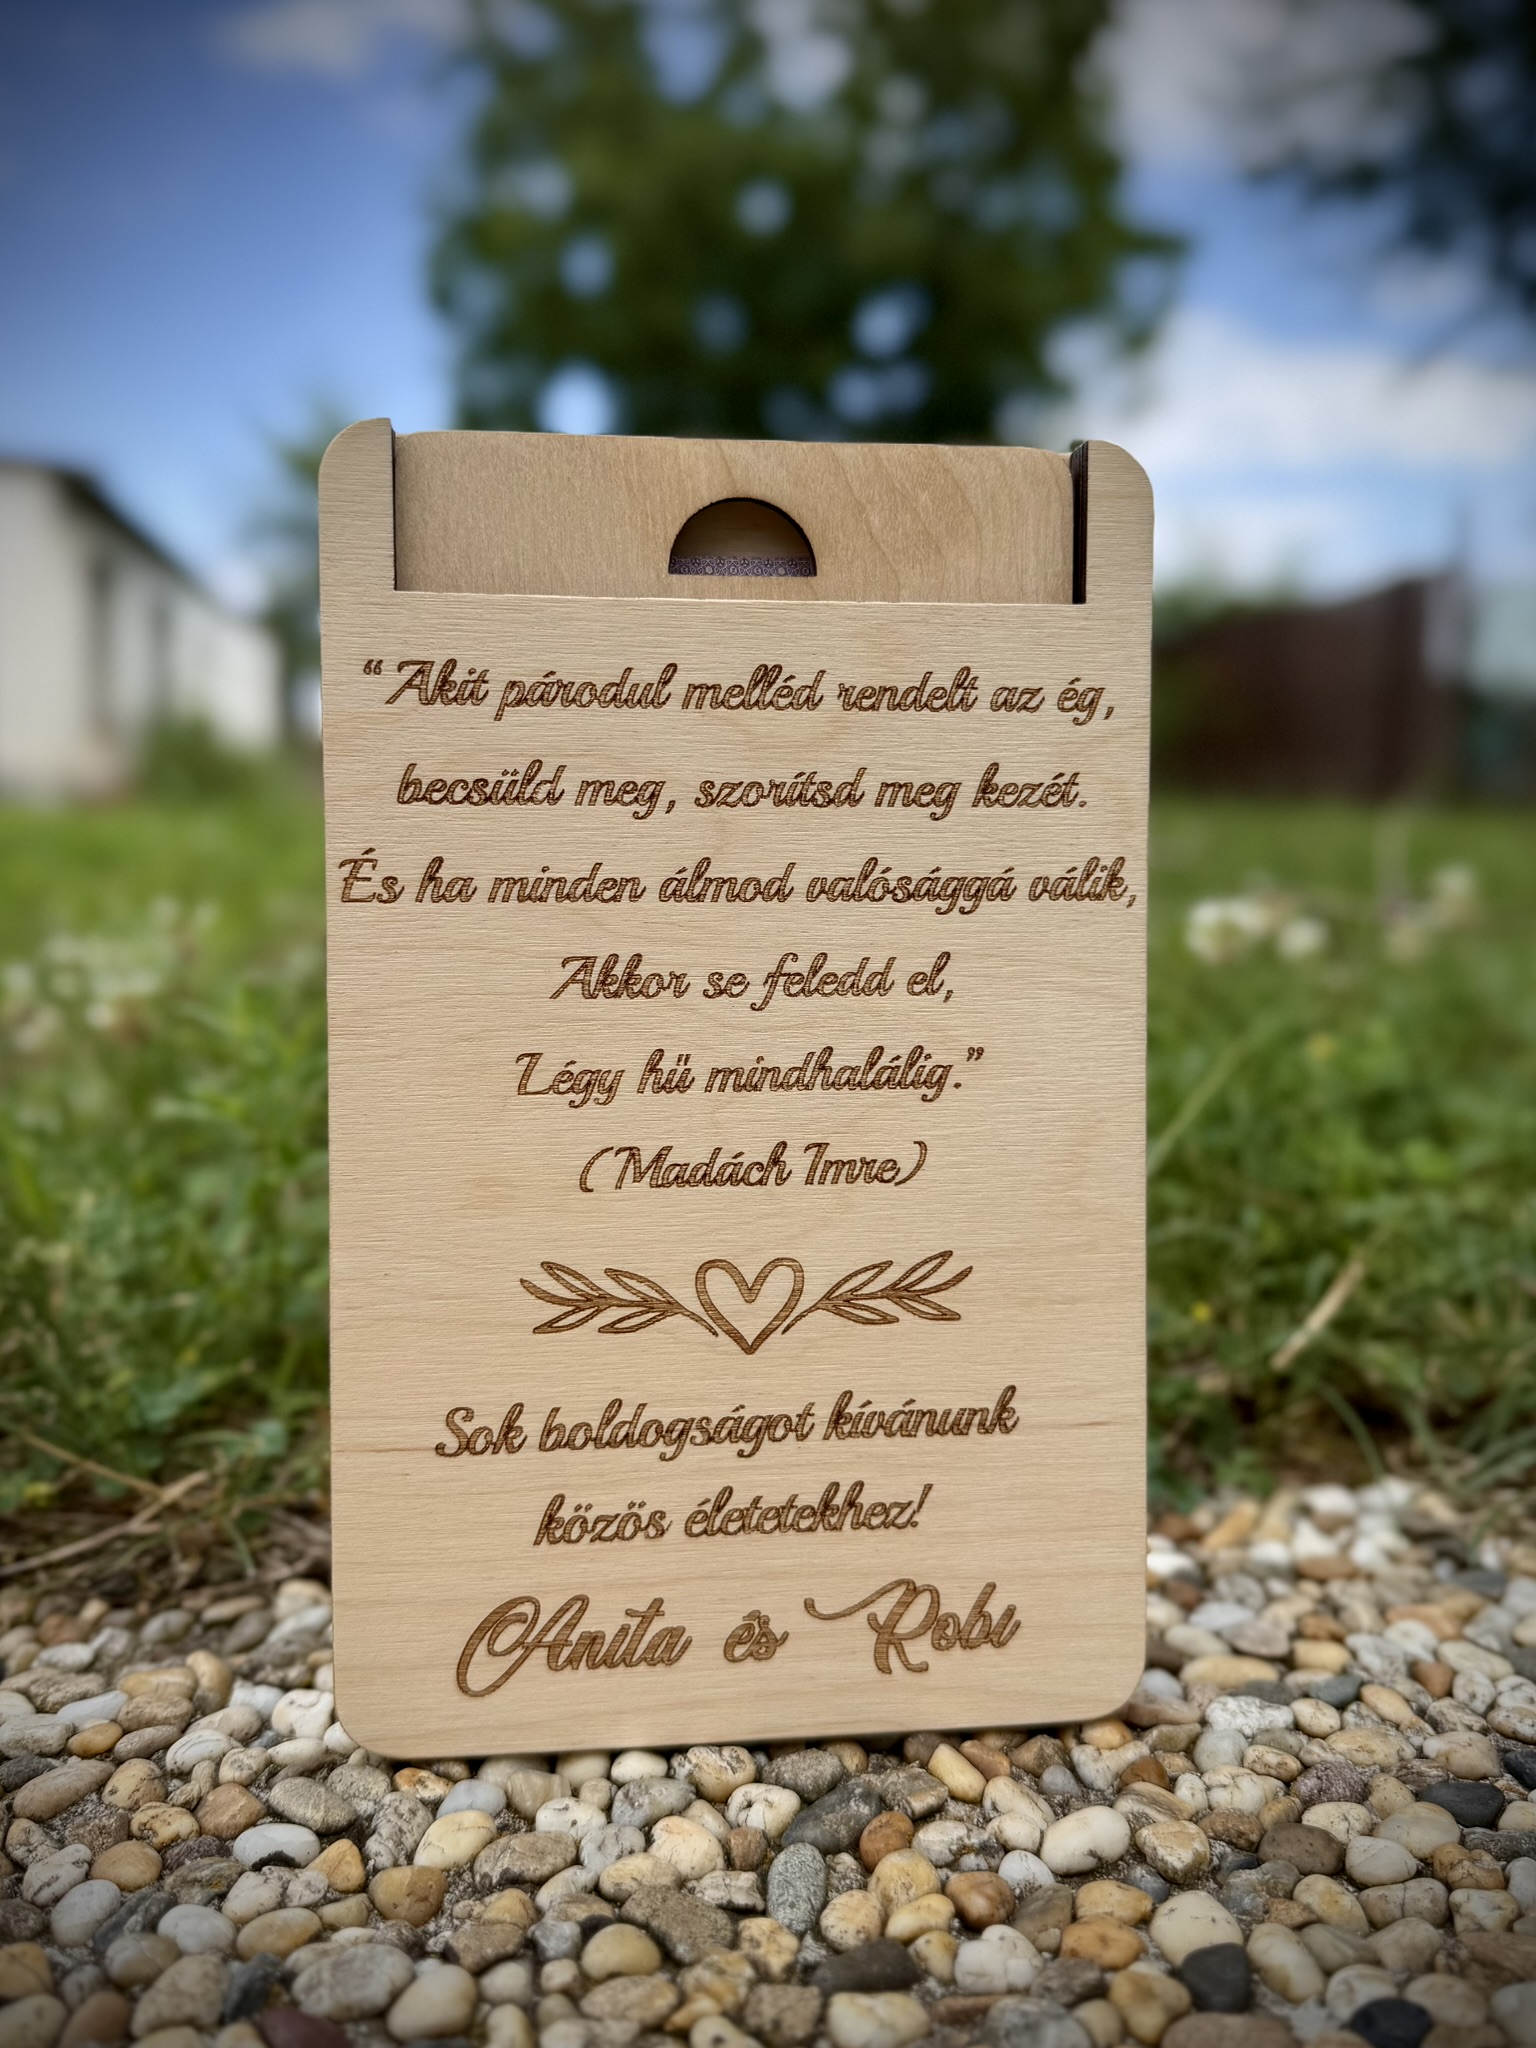 “Akit párodul melléd rendelt az ég,
becsüld meg, szorítsd meg kezét.
És ha minden álmod valósággá válik,
Akkor se feledd el,
Légy hű mindhalálig.”
(Madách Imre)
Sok boldogságot kívánunk
közös életetekhez!
Anita és Robi